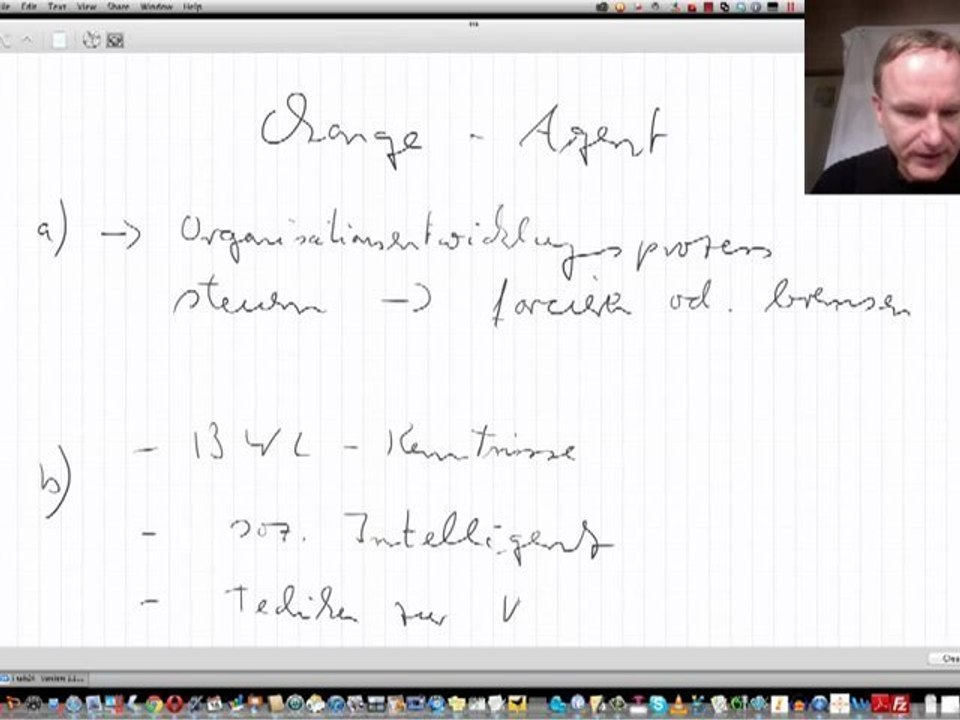 File Edit Text View Share Window Help
Change - Agent
a) -> Organisationsentwicklungsprozess
steuern -> forcieren od. bremsen
b) - BWL - Kenntnisse
- soz. Intelligenz
- Techiken zur V
Clea